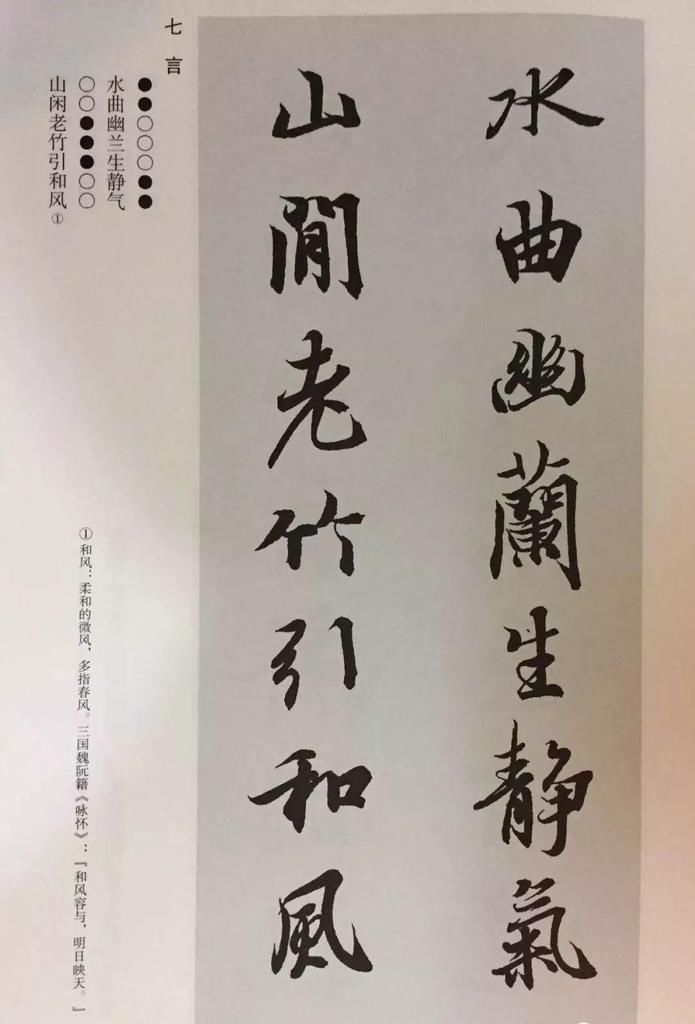 水曲幽蘭生静氣
山閒老竹引和風
七言
●●○○○●●
水曲幽兰生静气
○○●●●○○
山闲老竹引和风①
①和风：柔和的微风，多指春风。三国魏阮籍《咏怀》：「和风容与，明日映天。」